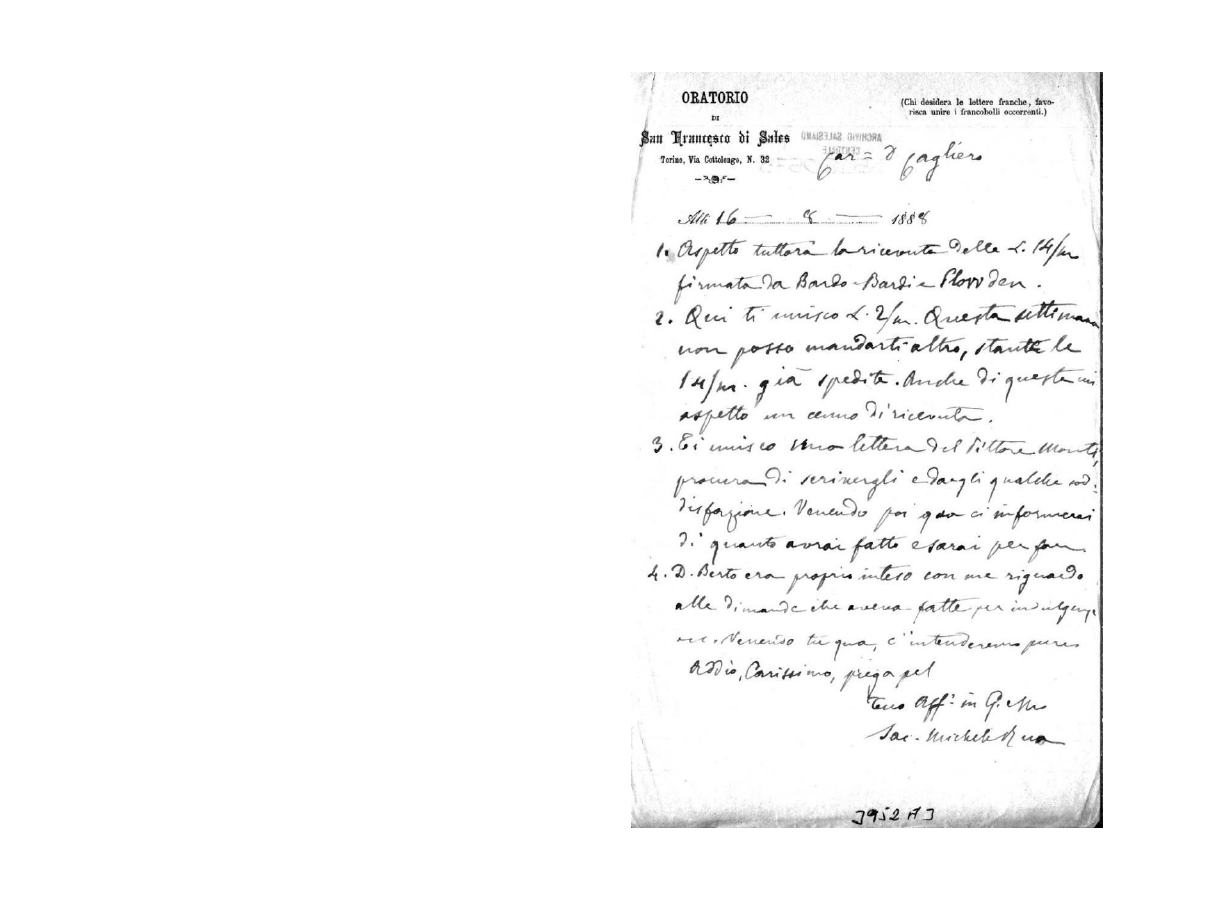 ORATORIO
DI
San Francesco di Sales
Torino, Via Cottolengo, N. 32
(Chi desidera le lettere franche, favo-
risca unire i francobolli occorrenti.)
ARCHIVIO SALESIANO
CENTRALE
Car.° D Cagliero
Alli 16 — 8 — 1888
1. Aspetto tuttora la ricevuta delle L. 14/m
firmata da Bardo-Bardi e Plowden.
2. Qui ti unisco L. 2/m. Questa settimana
non posso mandarti altro, stante le
14/m. già spedite. Anche di queste mi
aspetto un cenno di ricevuta.
3. Ti unisco una lettera del Pittore Monti,
procura di scrivergli e dargli qualche sod-
disfazione. Venendo poi qua ci informerai
di quanto avrai fatto e sarai per fare
4. D. Berto era proprio inteso con me riguardo
alle dimande che aveva fatte per indulgenze
ecc. Venendo tu qua, c'intenderemo pure
Addio, Carissimo, prega pel
tuo Aff.° in G. e M.
Sac. Michele Rua
3952 A 3